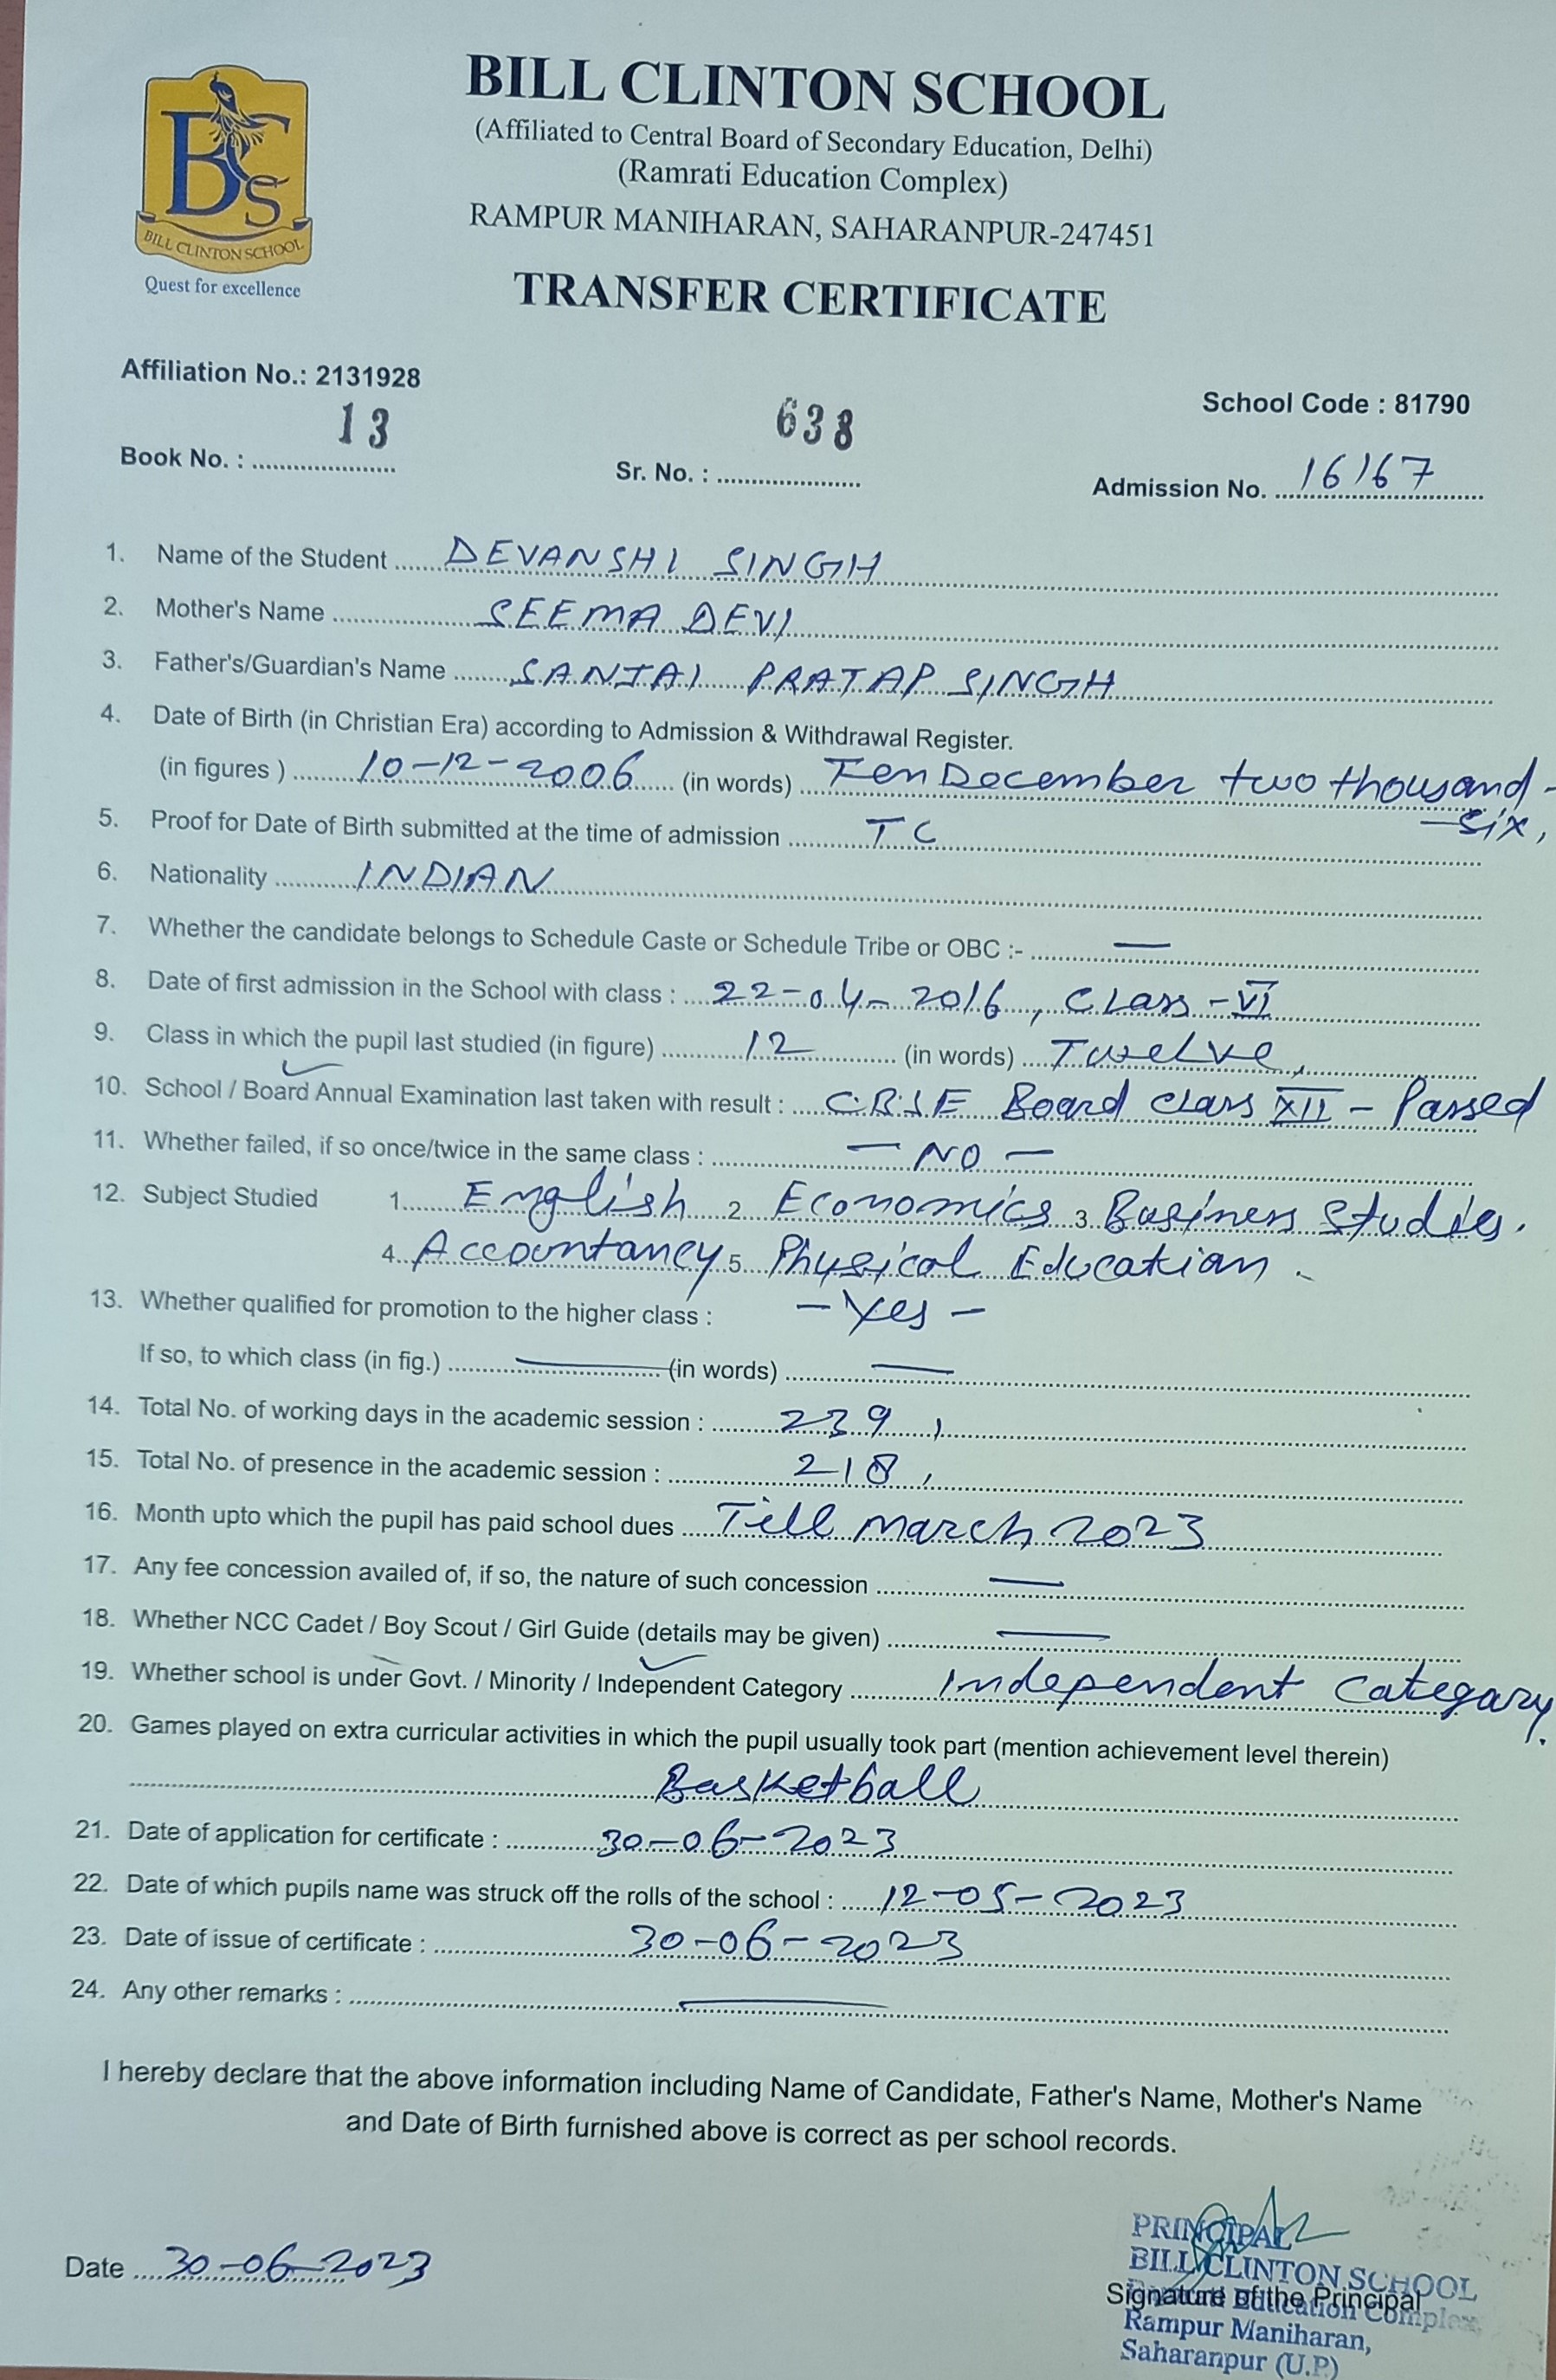 BCS
BILL CLINTON SCHOOL
Quest for excellence
BILL CLINTON SCHOOL
(Affiliated to Central Board of Secondary Education, Delhi)
(Ramrati Education Complex)
RAMPUR MANIHARAN, SAHARANPUR-247451
TRANSFER CERTIFICATE
Affiliation No.: 2131928
School Code : 81790
Book No. : 13 Sr. No. : 638 Admission No. 16167
1. Name of the Student DEVANSHI SINGH
2. Mother's Name SEEMA DEVI
3. Father's/Guardian's Name SANJAI PRATAP SINGH
4. Date of Birth (in Christian Era) according to Admission & Withdrawal Register.
(in figures ) 10-12-2006 (in words) Ten December two thousand -
- six,
5. Proof for Date of Birth submitted at the time of admission TC
6. Nationality INDIAN
7. Whether the candidate belongs to Schedule Caste or Schedule Tribe or OBC :- —
8. Date of first admission in the School with class : 22-04-2016, Class - VI
9. Class in which the pupil last studied (in figure) 12 (in words) Twelve,
10. School / Board Annual Examination last taken with result : C.B.S.E Board class XII - Passed
11. Whether failed, if so once/twice in the same class : - NO -
12. Subject Studied 1. English 2. Economics 3. Business Studies.
4. Accountancy 5. Physical Education.
13. Whether qualified for promotion to the higher class : - Yes -
If so, to which class (in fig.) — (in words) —
14. Total No. of working days in the academic session : 239,
15. Total No. of presence in the academic session : 218,
16. Month upto which the pupil has paid school dues Till March, 2023
17. Any fee concession availed of, if so, the nature of such concession —
18. Whether NCC Cadet / Boy Scout / Girl Guide (details may be given) —
19. Whether school is under Govt. / Minority / Independent Category Independent Category.
20. Games played on extra curricular activities in which the pupil usually took part (mention achievement level therein)
Basketball
21. Date of application for certificate : 30-06-2023
22. Date of which pupils name was struck off the rolls of the school : 12-05-2023
23. Date of issue of certificate : 30-06-2023
24. Any other remarks : —
I hereby declare that the above information including Name of Candidate, Father's Name, Mother's Name
and Date of Birth furnished above is correct as per school records.
Date 30-06-2023
PRINCIPAL
BILL CLINTON SCHOOL
Signature of the Principal
Education Complex,
Rampur Maniharan,
Saharanpur (U.P.)